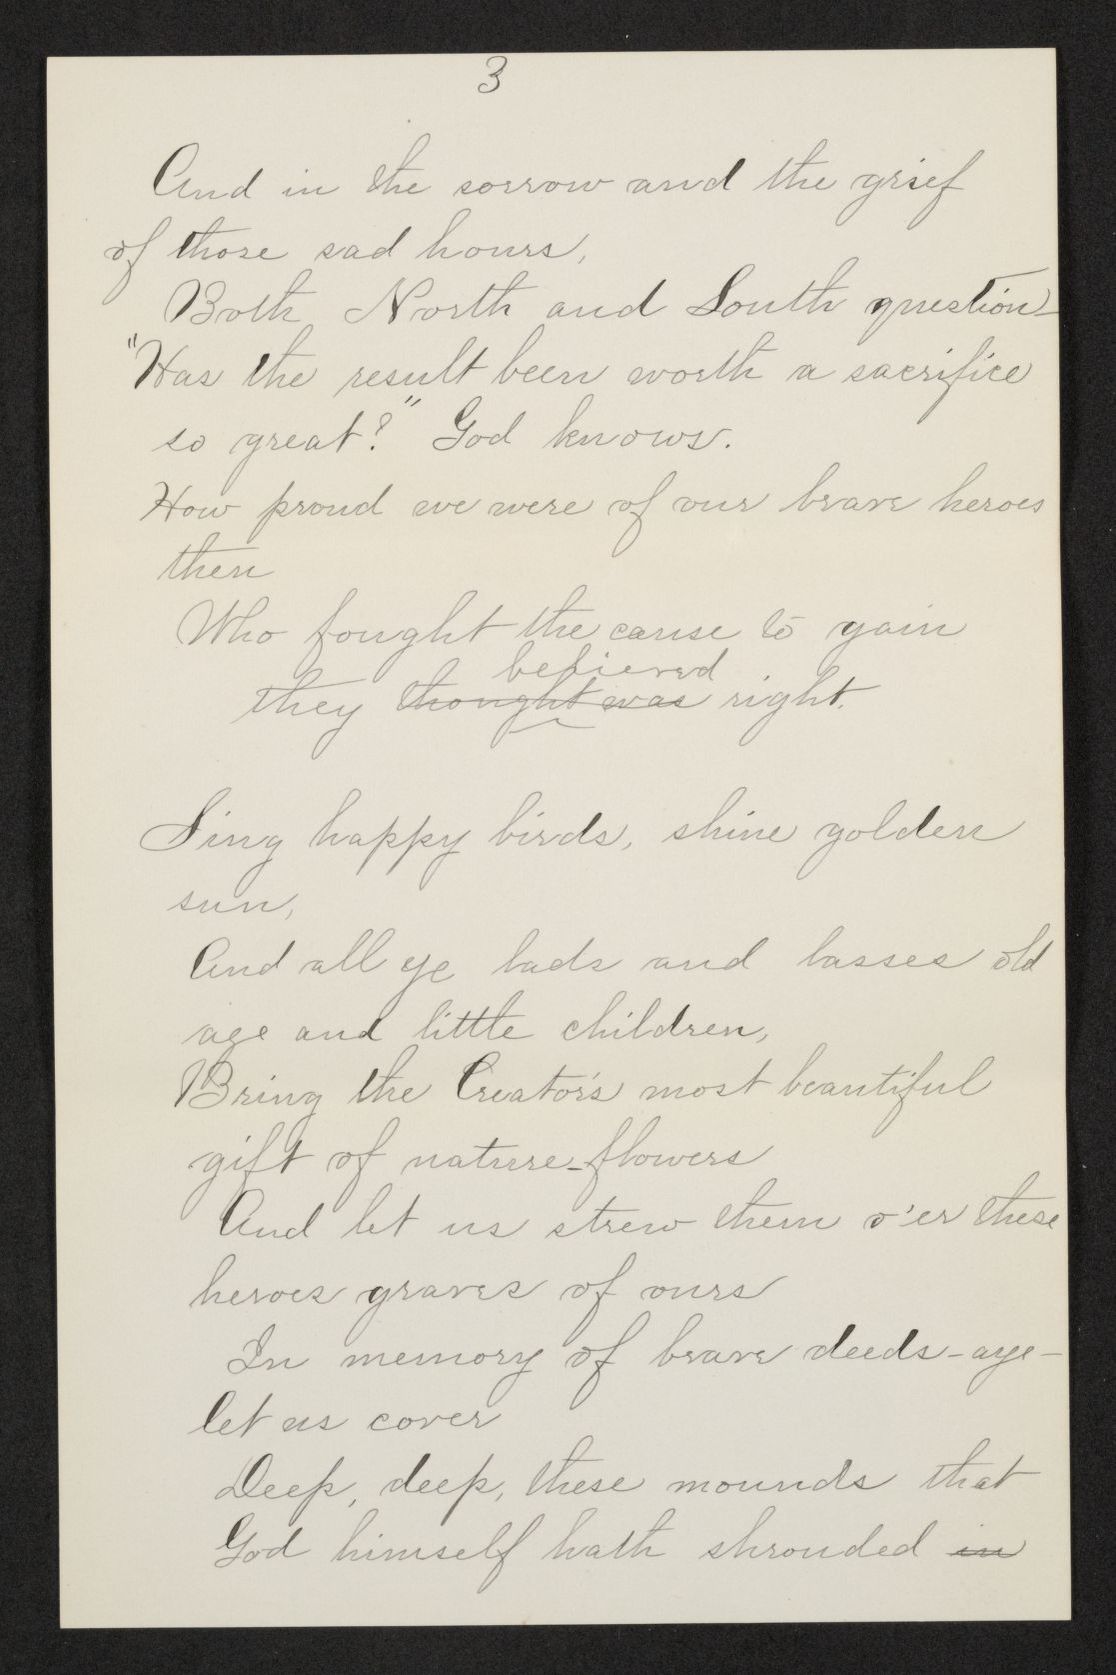 3
And in the sorrow and the grief
of those sad hours,
Both North and South question-
"Has the result been worth a sacrifice
so great?" God knows.
How proud we were of our brave heroes
then
Who fought the cause to gain
believed
they thought was right.
Sing happy birds, shine golden
sun,
And all ye lads and lasses old
age and little children,
Bring the Creator's most beautiful
gift of nature-flowers
And let us strew them o'er these
heroes graves of ours
In memory of brave deeds-aye-
let us cover
Deep, deep, these mounds that
God himself hath shrouded in